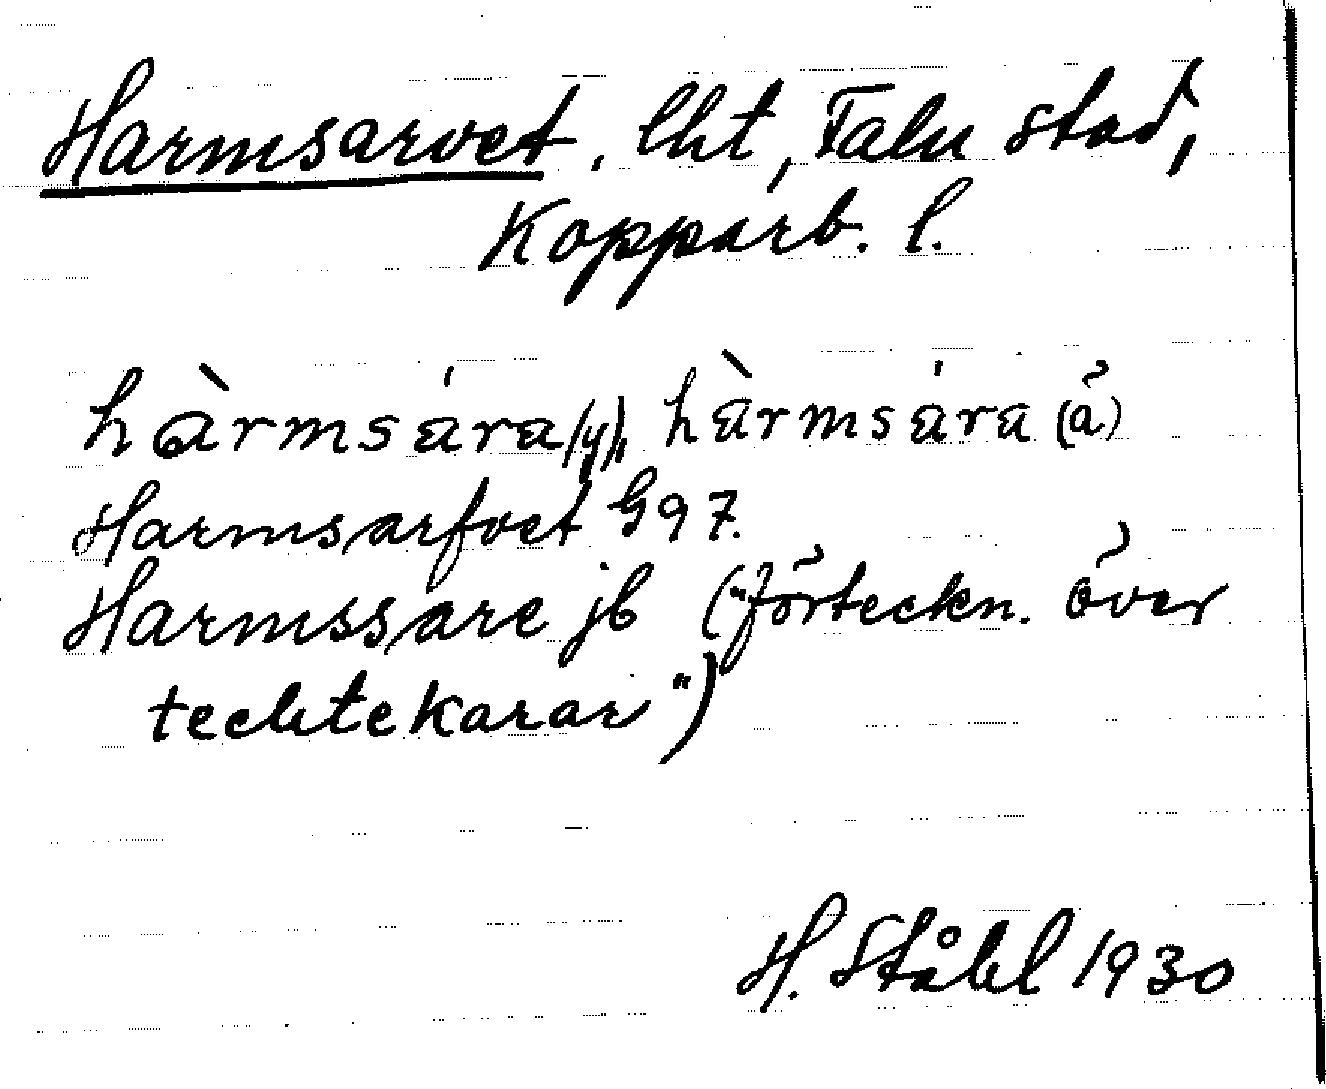 Harmsarvet, lht, Falu stad,
Kopparb. l.
hàrmsára (y), hàrmsára (ä)
Harmsarfvet G97.
Harmssare jb ("förteckn. över
techtekarar")
H. Ståhl 1930